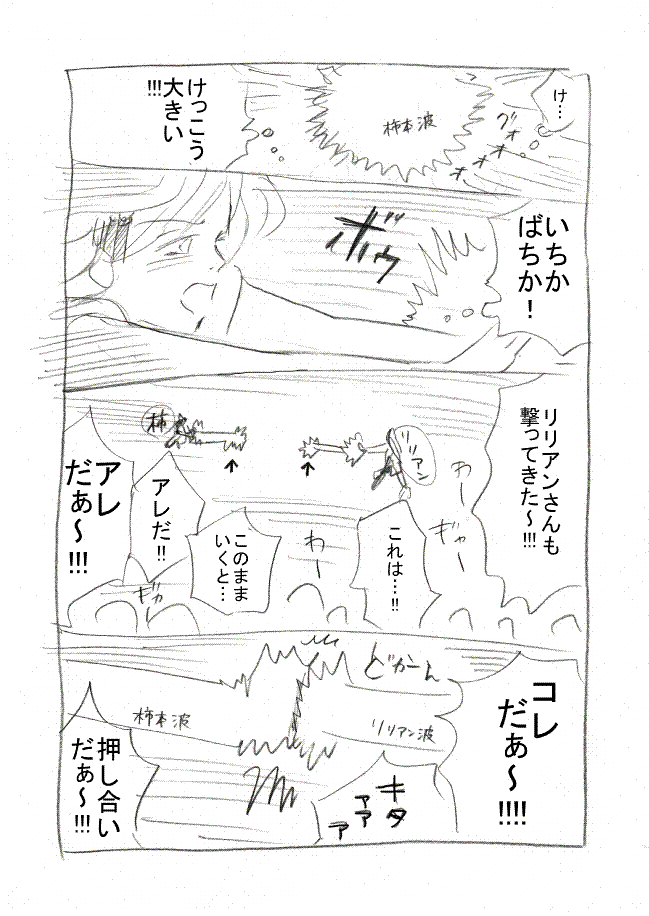 け…
グォォォォ
柿本波
けっこう
大きい
!!!
いちか
ばちか！
ボッ
ボゥ
リリアンさんも
撃ってきた～!!!
わー
ギャー
リリアン
これは…!!
わー
このまま
いくと…
柿
アレだ!!
ギャ
アレ
だぁ～!!!
コレ
だぁ～!!!!
どかーん
リリアン波
キタ
ァァ
ァ
柿本波
押し合い
だぁ～!!!